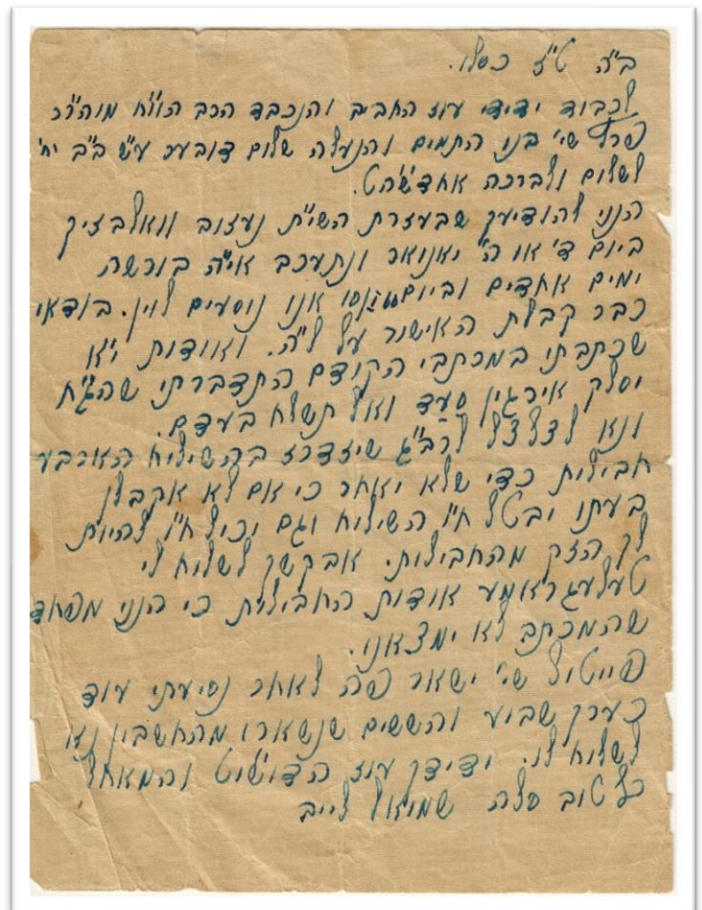 ב"ה ט"ז כסלו.
לכבוד ידידי עוז החביב והנכבד הרב הוו"ח מוהר"ר
שי' בנו התמים והנעלה שלום דובער ע"ש ב"ב יח'
לשלום ולברכה
הנני להודיעך שבעזרת השי"ת נעזוב
ביום ד' או ה' יאנואר ונתעכב אי"ה בורשה
ימים אחדים וביום אנו נוסעים לוין. בודאי
כבר קבלת האישור על ואודות
שכתבתי במכתבי הקודם התדברתי
יסלק ואל תשלח בעדם.
ונא לצלצל שיזדרז בהשיליח הארבע
חבילית כדי שלא יאחר כי אם לא אקבלן
בעתו יבטל ח"ו השיליח וגם יכיל ח"ו להיות
לך הזק מהחבילות. אבקשך לשלוח לי
טעלעגראמע אודות החבילית כי הנני מפחד
שהמכתב לא ימצאנו.
שי' ישאר פה לאחר נסיעתי עוד
כערך שביע והששים שנשארו מהחשבין נא
לשלוח לו. ידידך עוז הדו"שו"ט והמאחל
כל טוב סלה שמואל לייב